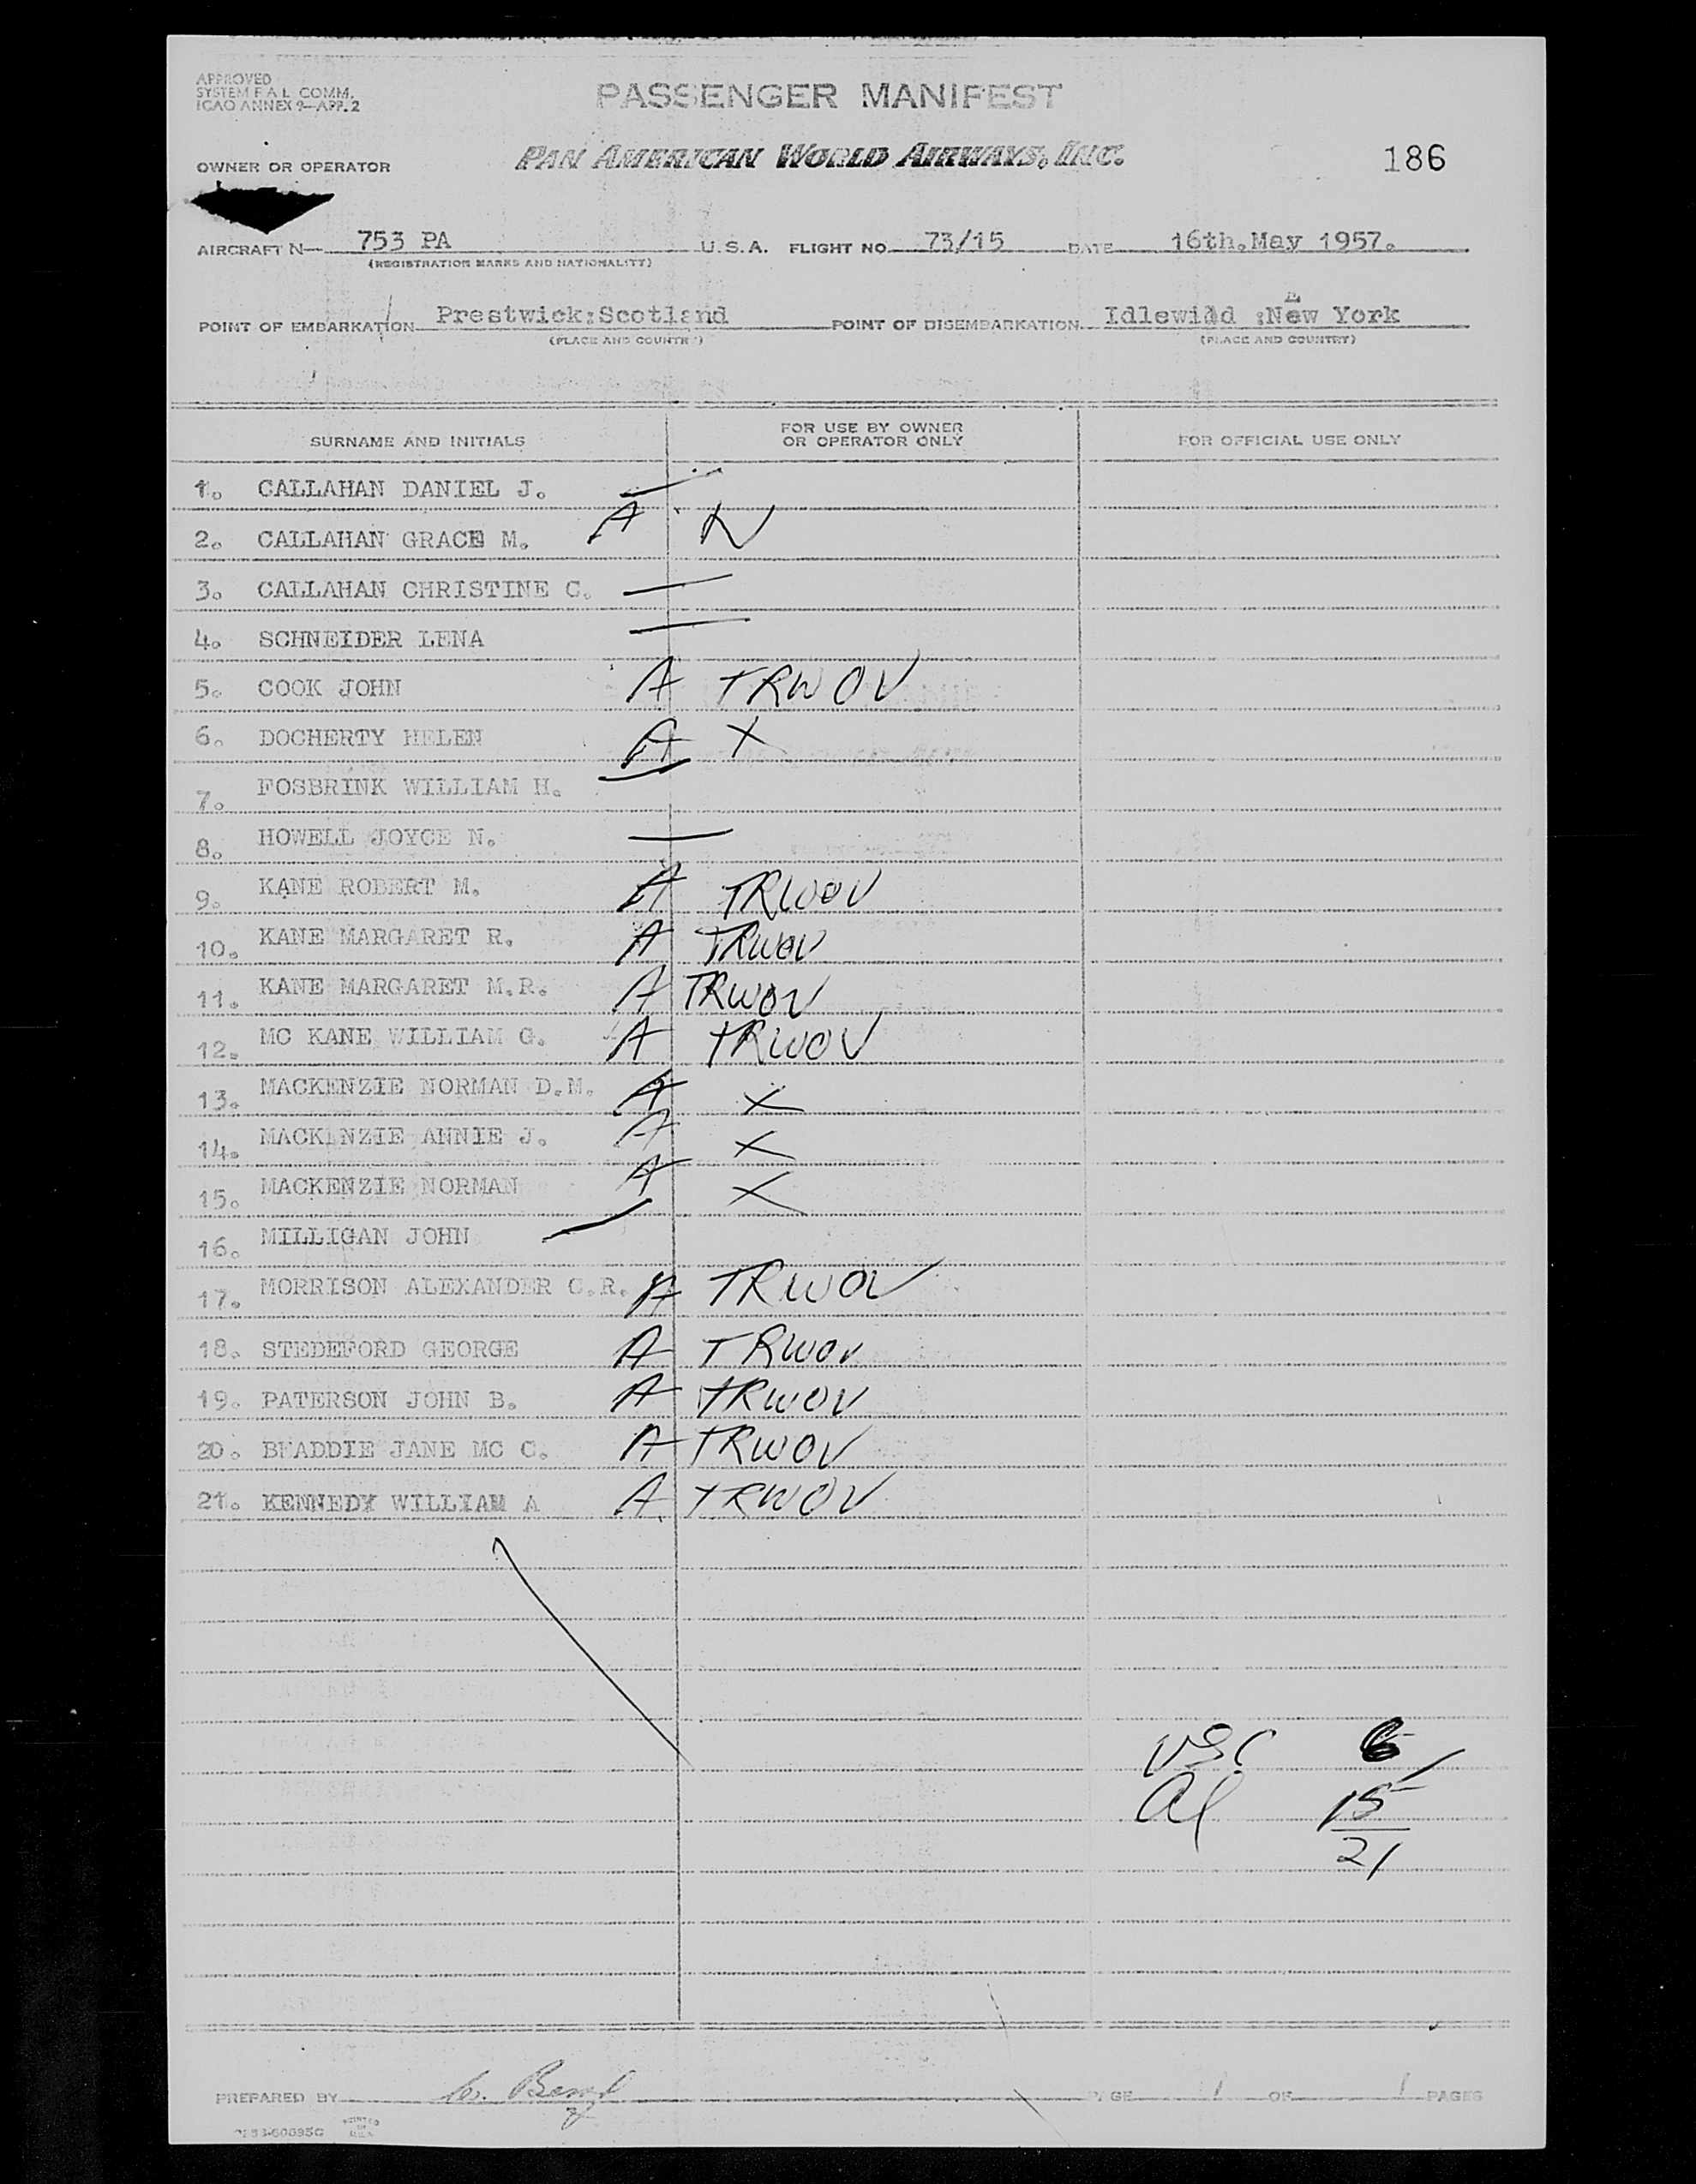 APPROVED
SYSTEM F A L COMM.
ICAO ANNEX 9—APP. 2
PASSENGER MANIFEST
OWNER OR OPERATOR
PAN AMERICAN WORLD AIRWAYS, INC.
186
AIRCRAFT N— 753 PA U. S. A. FLIGHT NO 73/15 DATE 16th.May 1957.
(REGISTRATION MARKS AND NATIONALITY)
POINT OF EMBARKATION Prestwick:Scotland POINT OF DISEMBARKATION Idlewild :New York
(PLACE AND COUNTRY) (PLACE AND COUNTRY)
SURNAME AND INITIALS FOR USE BY OWNER OR OPERATOR ONLY FOR OFFICIAL USE ONLY
1. CALLAHAN DANIEL J. —
2. CALLAHAN GRACE M. A N
3. CALLAHAN CHRISTINE C. —
4. SCHNEIDER LENA —
5. COOK JOHN A TRWOV
6. DOCHERTY HELEN A X
7. FOSBRINK WILLIAM H. —
8. HOWELL JOYCE N. —
9. KANE ROBERT M. A TRWOV
10. KANE MARGARET R. A TRWOV
11. KANE MARGARET M.R. A TRWOV
12. MC KANE WILLIAM G. A TRWOV
13. MACKENZIE NORMAN D.M. A X
14. MACKENZIE ANNIE J. A X
15. MACKENZIE NORMAN A X
16. MILLIGAN JOHN —
17. MORRISON ALEXANDER C.R. A TRWOV
18. STEDEFORD GEORGE A TRWOV
19. PATERSON JOHN B. A TRWOV
20. BEADDIE JANE MC C. A TRWOV
21. KENNEDY WILLIAM A A TRWOV
USC 6
Al 15
21
PREPARED BY
PAGE 1 OF 1 PAGES
PRINTED IN U.S.A.